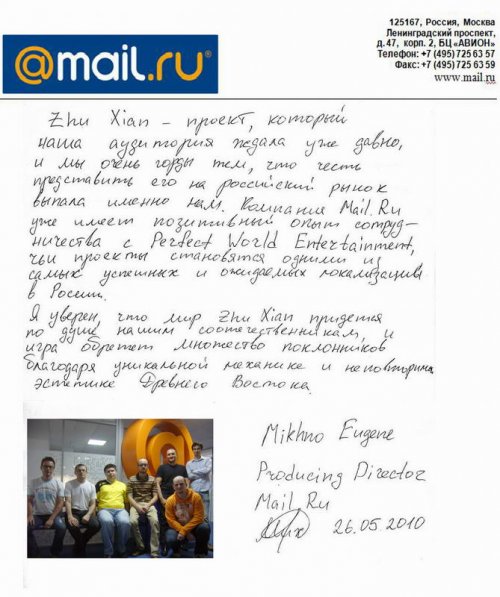 @mail.ru®
125167, Россия, Москва
Ленинградский проспект,
д.47, корп. 2, БЦ «АВИОН»
Телефон: +7 (495) 725 63 57
Факс: +7 (495) 725 63 59
www.mail.ru
Zhu Xian – проект, который
наша аудитория ждала уже давно,
и мы очень горды тем, что честь
представить его на российский рынок
выпала именно нам. Компания Mail.Ru
уже имеет позитивный опыт сотруд-
ничества с Perfect World Entertainment,
чьи проекты становятся одними из
самых успешных и ожидаемых локализаций
в России.
Я уверен, что мир Zhu Xian придется
по душе нашим соотечественникам, и
игра обретет множество поклонников
благодаря уникальной механике и неповторимо
эстетике Древнего Востока.
Mikhno Eugene
Producing Director
Mail.Ru
26.05.2010